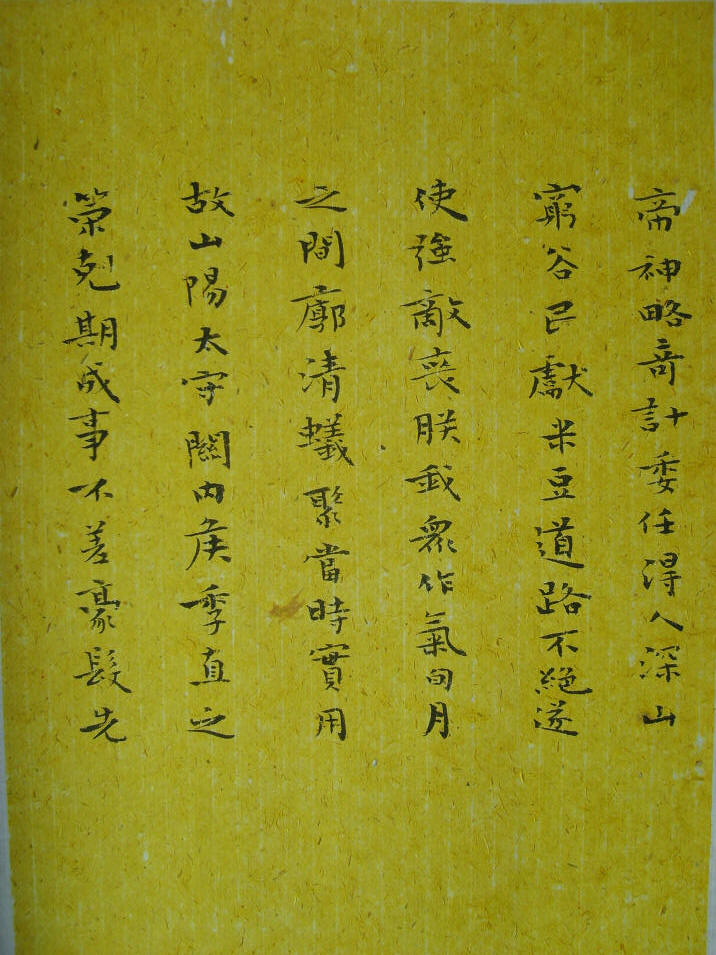 帝神略奇計委任得人深山
窮谷已獻米豆道路不絕遂
使強敵喪朕我衆作氣旬月
之間廓清蟻聚當時實用
故山陽太守關內侯季直之
策剋期成事不差豪髮先